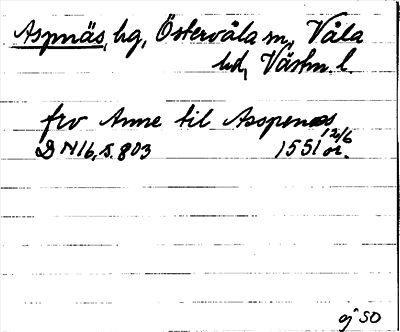 Aspnäs, hg, Östervåla sn, Våla
hd, Västm. l.
frv Anne til Asspenæs
DN 16, s. 803 1551 12/6 or.
ej SO